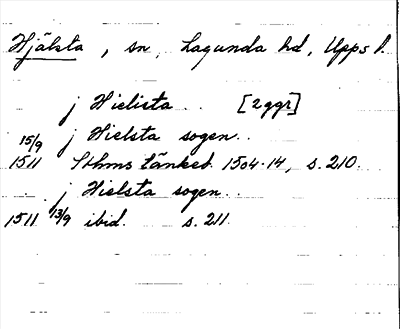 Hjälsta, sn, Lagunda hd, Upps l.
j Hielista .. [2 ggr]
j Hielsta sogen ..
15/9 1511 Sthms tänkeb. 1504-14, s. 210.
j Hielsta sogen ..
1511 13/9 ibid. s. 211.